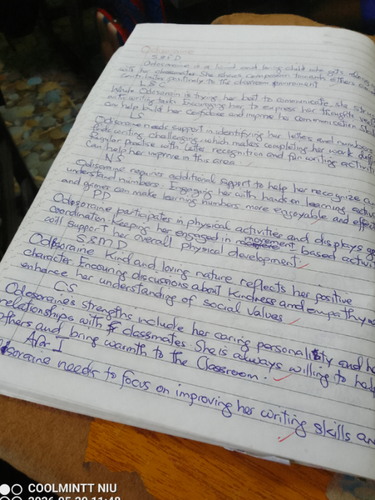 Odosorame
S.E.M.D
Odosorame is a loving child who gets along
with her classmates. She shows compassion towards others and
contributes positively to the classroom environment
L.S.C
While Odosorame is trying her best to communicate, she
and writing tasks. Encouraging her to express her thoughts
can help build her confidence and improve her communication skills
LS
Odosorame needs support in identifying her letters and numbers
finds writing challenging, which makes completing her work
Regular practice with letter recognition and fun writing activities
can help her improve in this area.
N.S
Odosorame requires additional support to help her recognize
understand numbers. Engaging her with hands on learning
and games can make learning numbers more enjoyable and
P.D
Odosorame participates in physical activities and displays
coordination. Keeping her engaged in movement based activities
will support her overall physical development.
S.S.M.D
Odosorame kind and loving nature reflects her positive
character. Encouring discussions about kindness and empathy
enhance her understanding of social values
CS
Odosorame's strengths include her caring personality and
relationships with classmates. She is always willing to help
others and bring warmth to the classroom.
A.F.I
needs to focus on improving her writing skills and
COOLMINTT NIU